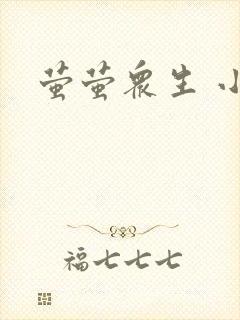 萤萤众生 小
福七七七